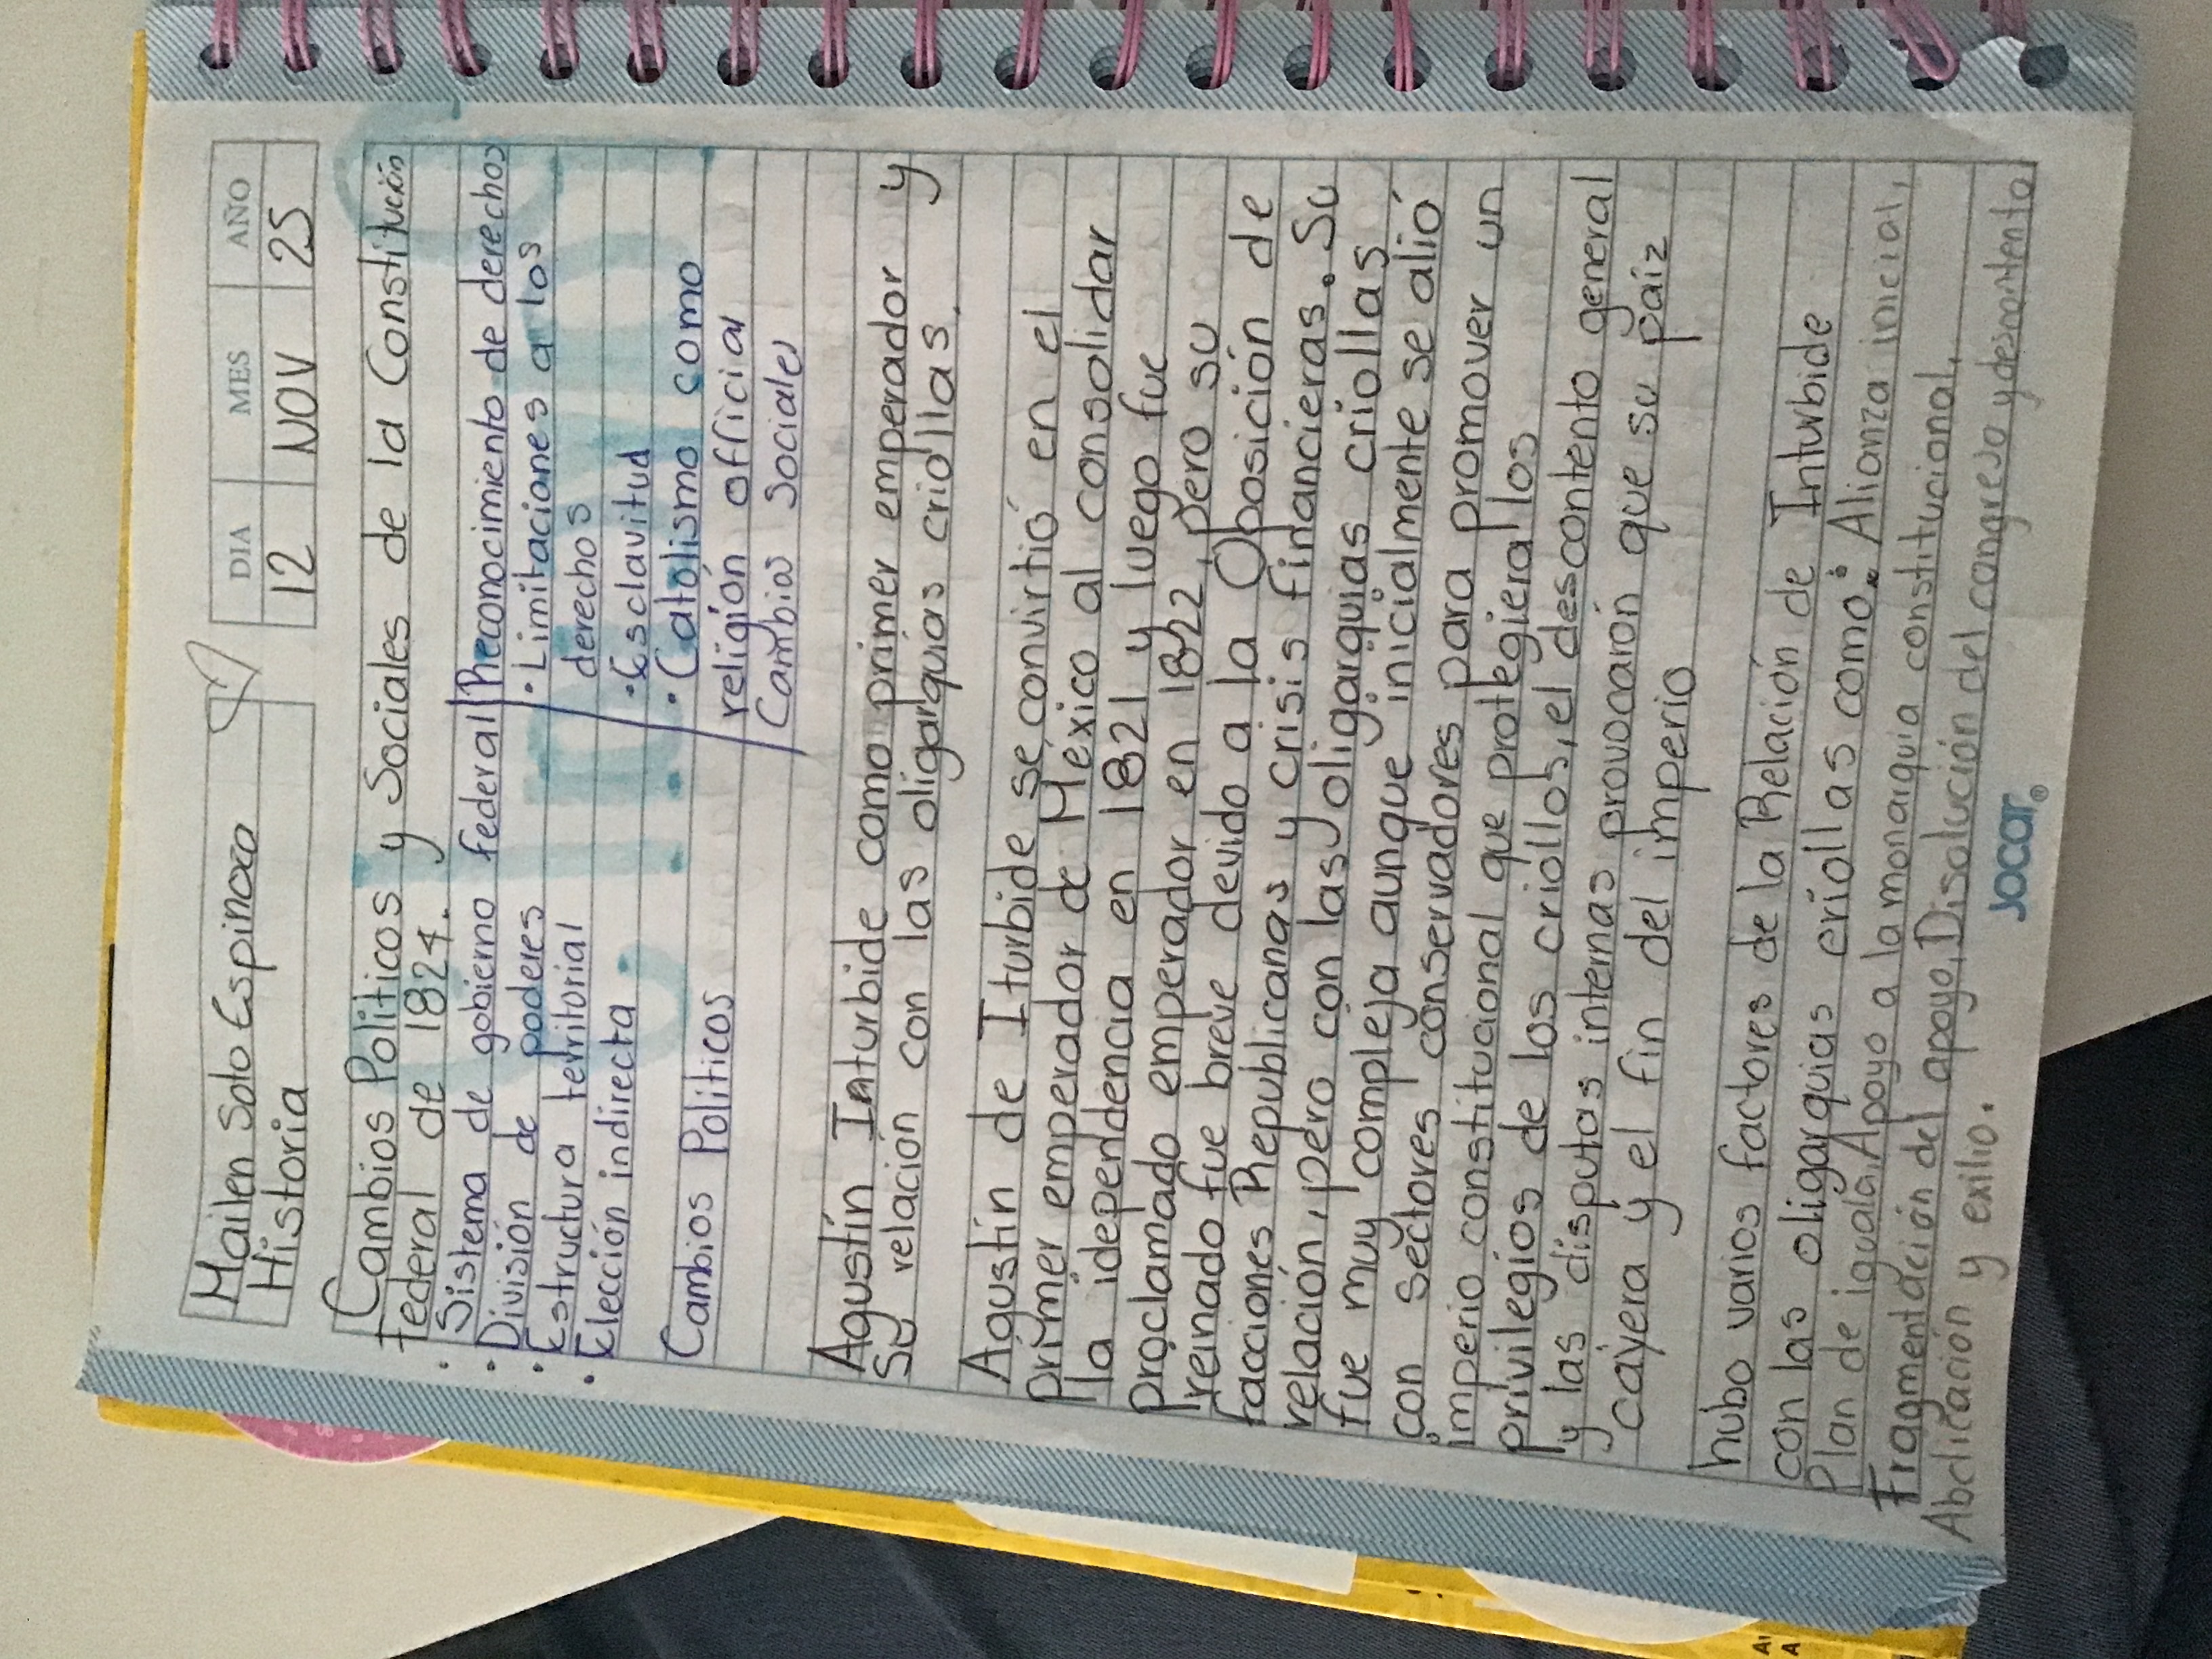 Mailen Soto Espinoza
Historia
DIA MES AÑO
12 NOV 25
Cambios Politicos y Sociales de la Constitución
federal de 1824.
• Sistema de gobierno federal
• División de poderes
• Estructura territorial
• Elección indirecta
Cambios Politicos
Reconocimiento de derechos
• Limitaciones a los
derechos
• Esclavitud
• Catolismo como
religión oficial
Cambios Sociales
Agustín Inturbide como primer emperador y
su relación con las oligarquías criollas.
Agustín de Iturbide se convirtió en el
primer emperador de México al consolidar
la idependencia en 1821 y luego fue
proclamado emperador en 1822, pero su
reinado fue breve devido a la Oposición de
facciones Republicanas y crisis financieras. Su
relación, pero con las oligarquias criollas
fue muy compleja aunque inicialmente se alió
con sectores conservadores para promover un
imperio constitucional que protegiera los
privilegios de los criollos, el descontento general
y las disputas internas provocarón que su país
cayera y el fin del imperio
hubo varios factores de la Relación de Inturbide
con las oligarquias criollas como: Alianza inicial,
Plan de iguala, Apoyo a la monarquia constitucional,
Fragmentación del apoyo, Disolución del congreso y descontento
Abdicación y exilio.
Jocar®